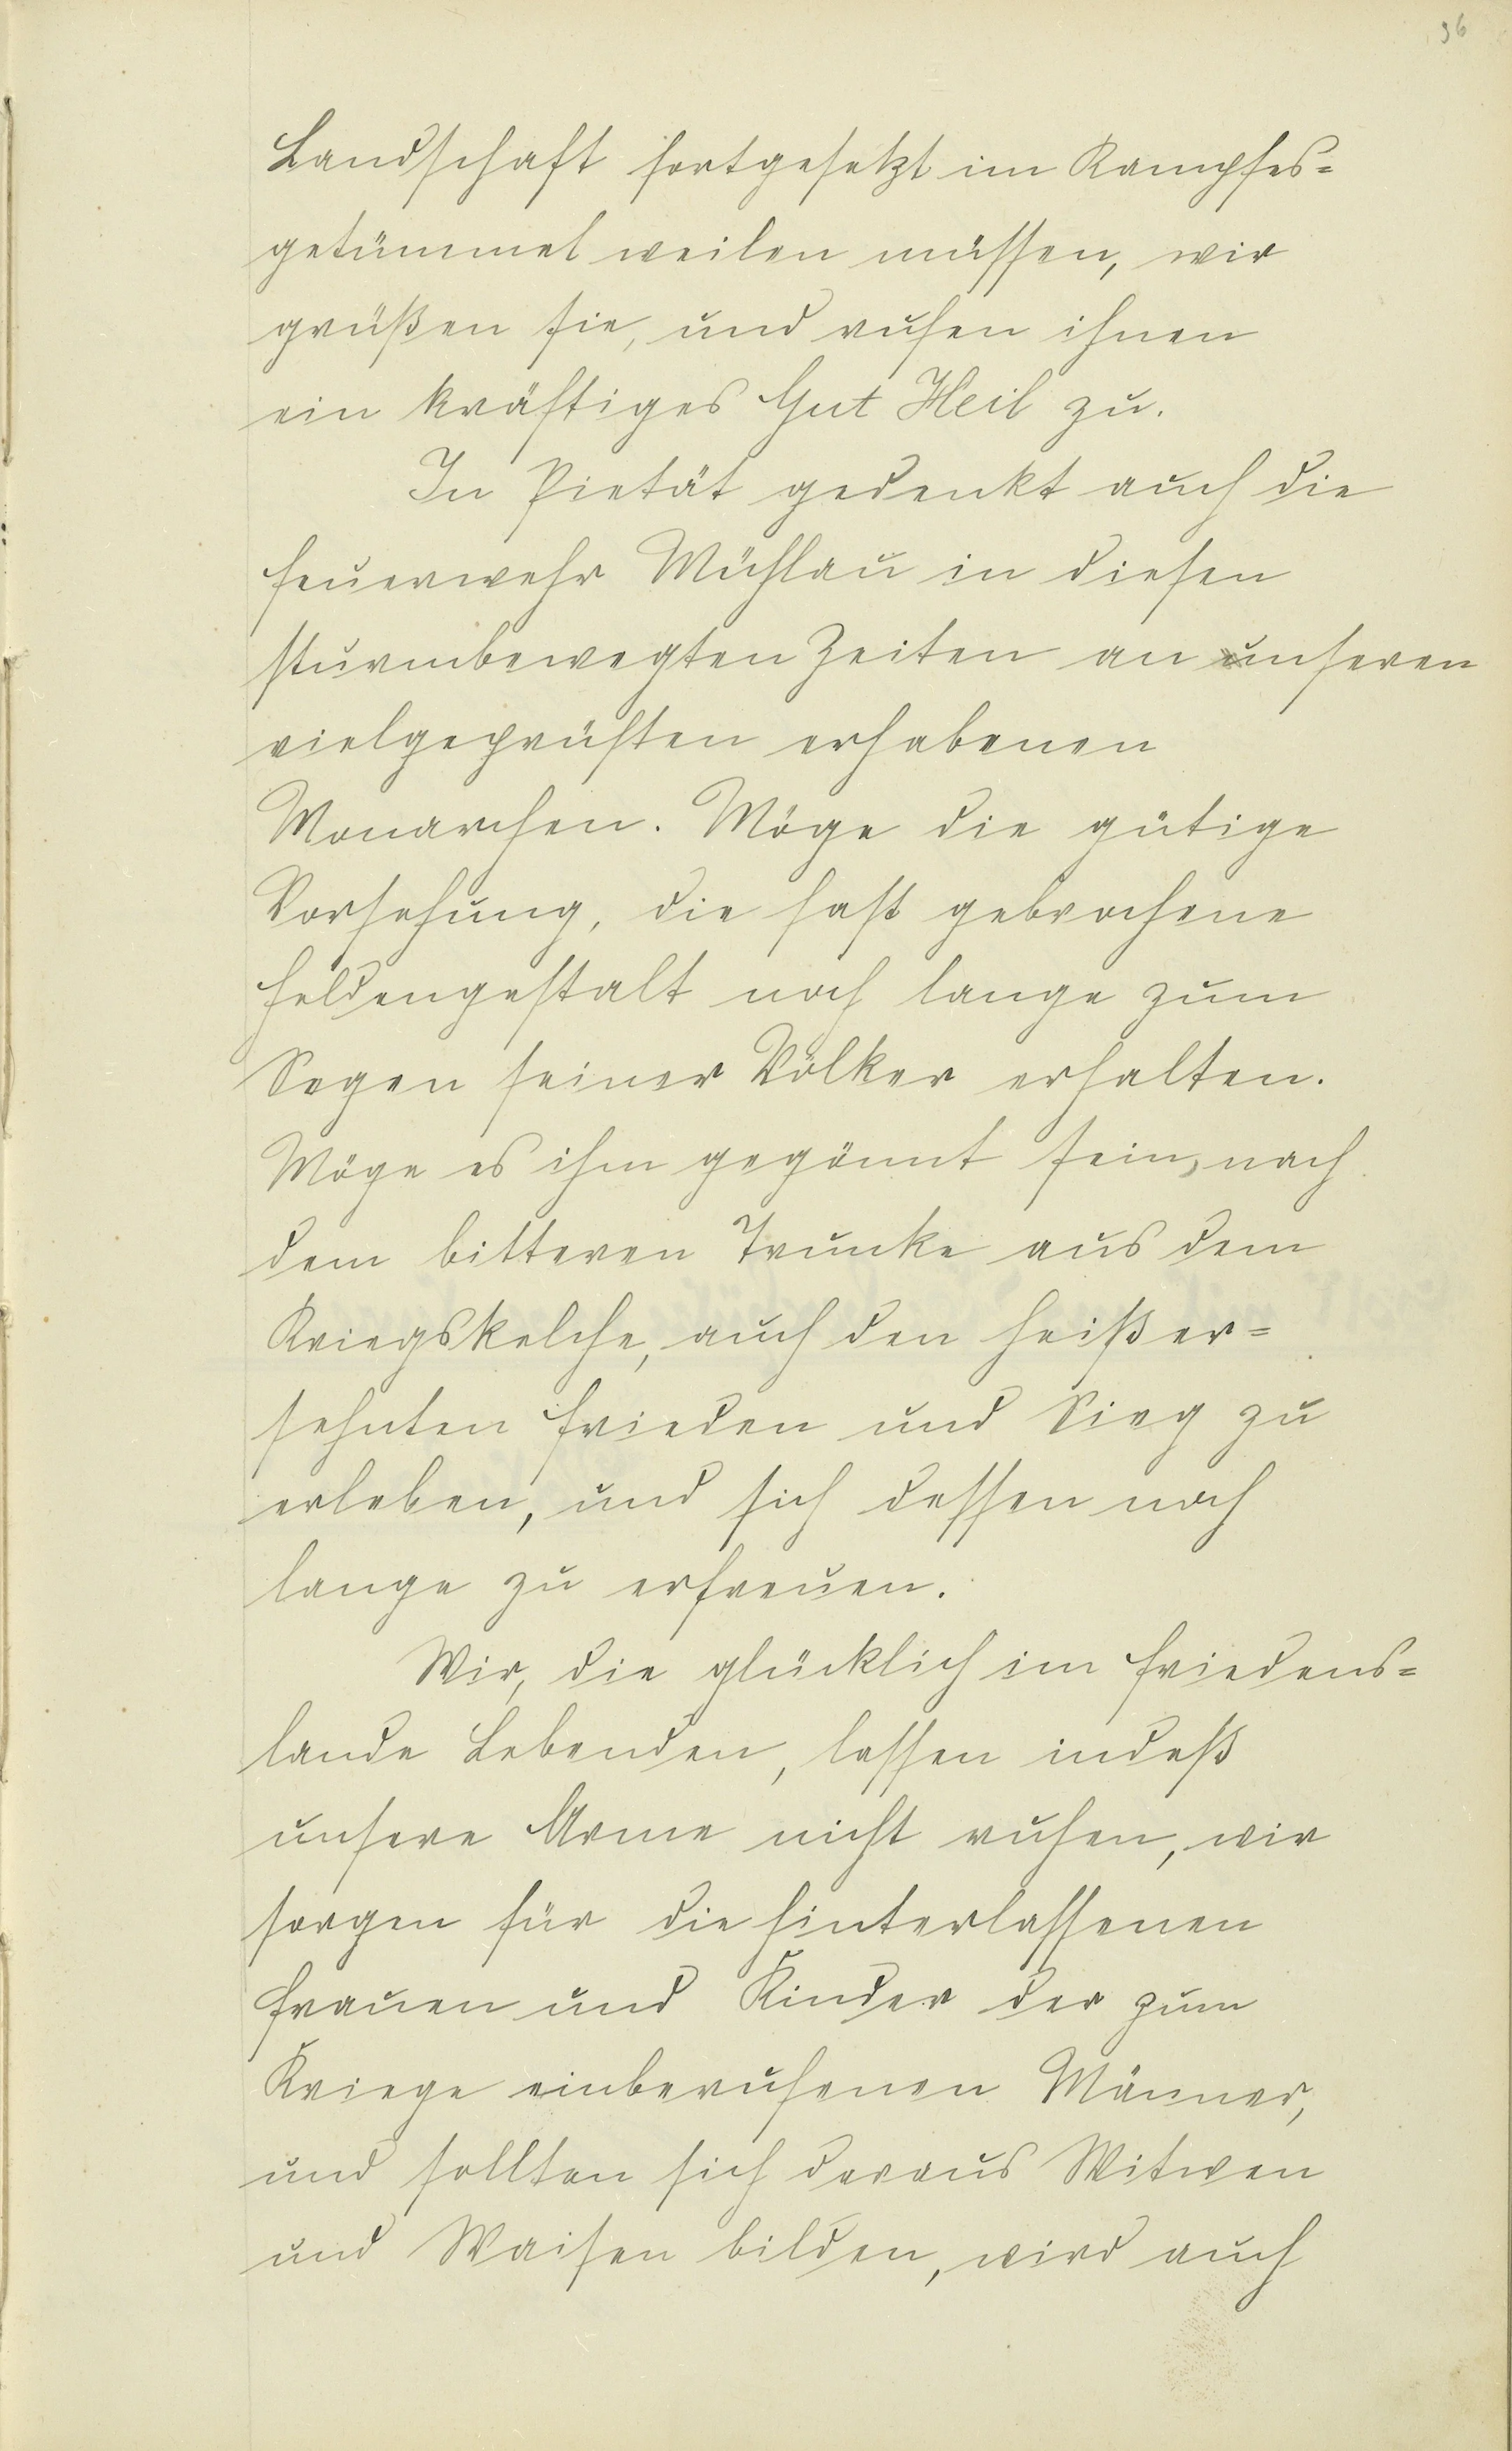 96
Landschaft fortgesetzt im Kampfes=
getümmel weilen müssen, wir
grüßen sie, und rufen ihnen
ein kräftiges Gut Heil zu.
In Pietät gedenkt auch die
Feuerwehr Mühlau in diesen
sturmbewegten Zeiten an unseren
vielgeprüften erhabenen
Monarchen. Möge die gütige
Vorsehung, die fast gebrochene
Heldengestalt noch lange zum
Segen seiner Völker erhalten.
Möge es ihm gegönnt sein, nach
dem bitteren Trunke aus dem
Kriegskelche, auch den heißer=
sehnten Frieden und Sieg zu
erleben, und sich dessen noch
lange zu erfreuen.
Wir, die glücklich im Friedens=
lande Lebenden, lassen indeß
unsere Arme nicht ruhen, wir
sorgen für die hinterlassenen
Frauen und Kinder der zum
Kriege einberufenen Männer,
und sollten sich daraus Witwen
und Waisen bilden, wird auch